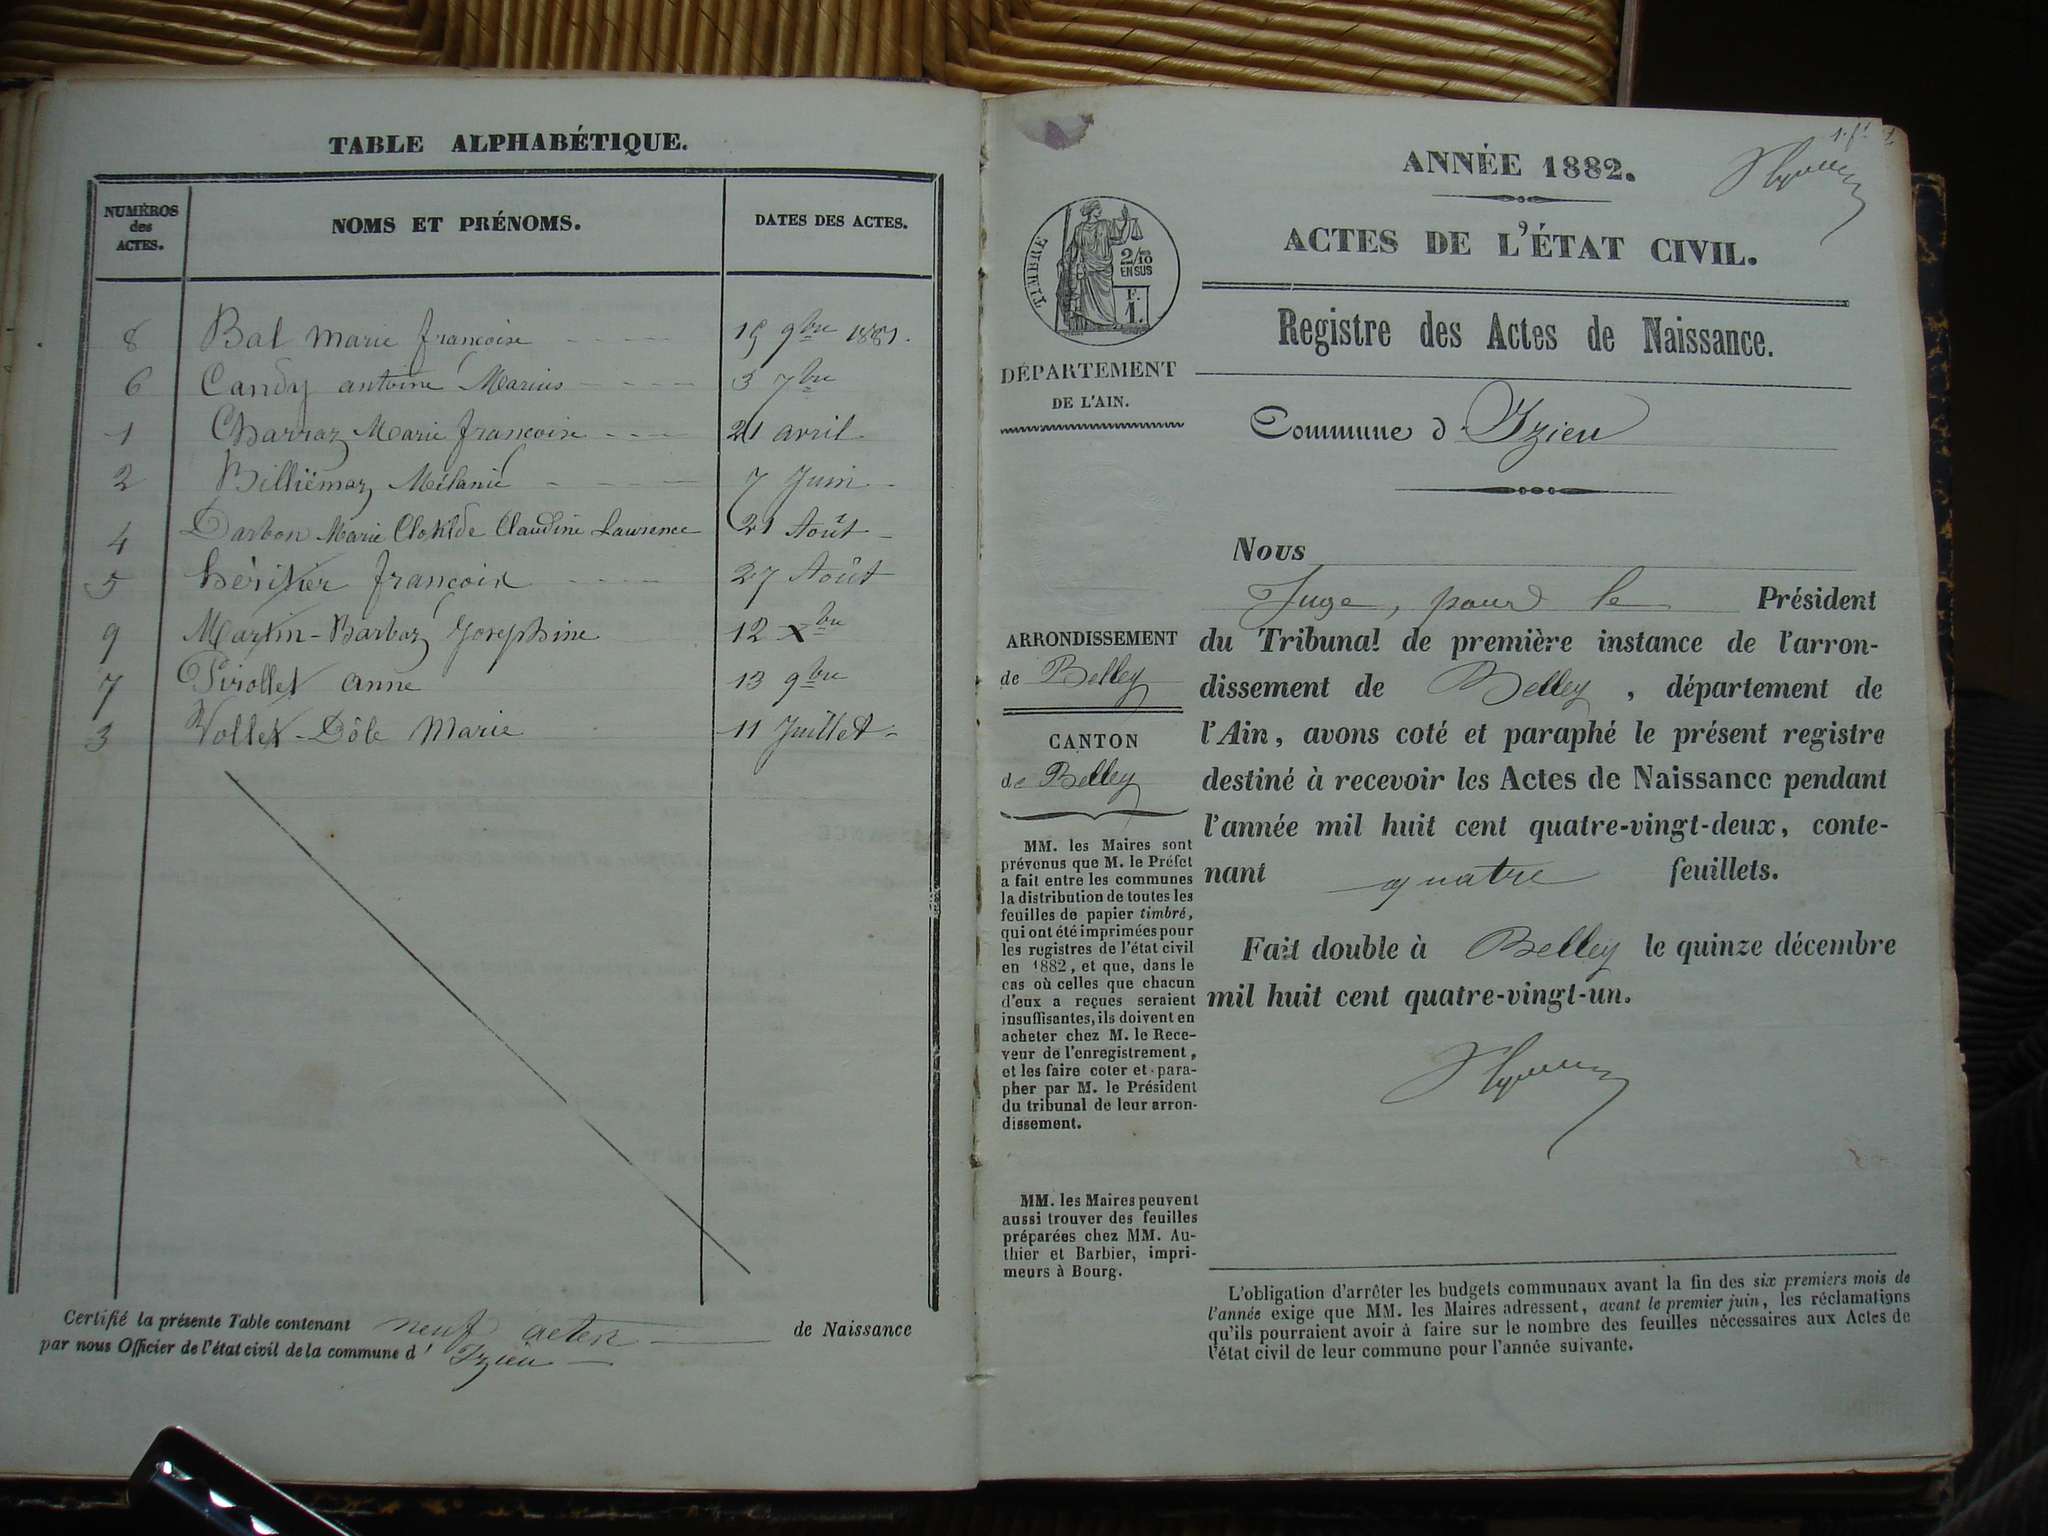 TABLE ALPHABÉTIQUE.
NUMÉROS
des
ACTES.
NOMS ET PRÉNOMS.
DATES DES ACTES.
8 Bal Marie françoise 15 9bre 1881.
6 Candy antoine Marius 3 7bre
1 Charraz Marie françoise 21 avril
2 Billiëmaz Mélanie 7 Juin
4 Darbon Marie Clotilde Claudine Laurence 21 Août
5 héritier françois 27 Août
9 Martin-Barbaz Josephine 12 Xbre
7 Pirollet anne 13 9bre
3 Vollet-Dôle Marie 11 Juillet
Certifié la présente Table contenant neuf actes de Naissance
par nous Officier de l'état civil de la commune d' Izieu
ANNÉE 1882.
ACTES DE L'ÉTAT CIVIL.
TIMBRE
2/10
EN SUS
F.
1.
Registre des Actes de Naissance.
DÉPARTEMENT
DE L'AIN.
Commune d'Izieu
ARRONDISSEMENT
de Belley
CANTON
de Belley
MM. les Maires sont
prévenus que M. le Préfet
a fait entre les communes
la distribution de toutes les
feuilles de papier timbré,
qui ont été imprimées pour
les registres de l'état civil
en 1882, et que, dans le
cas où celles que chacun
d'eux a reçues seraient
insuffisantes, ils doivent en
acheter chez M. le Rece-
veur de l'enregistrement,
et les faire coter et para-
pher par M. le Président
du tribunal de leur arron-
dissement.
MM. les Maires peuvent
aussi trouver des feuilles
préparées chez MM. Au-
thier et Barbier, impri-
meurs à Bourg.
Nous
Juge, pour le Président
du Tribunal de première instance de l'arron-
dissement de Belley, département de
l'Ain, avons coté et paraphé le présent registre
destiné à recevoir les Actes de Naissance pendant
l'année mil huit cent quatre-vingt-deux, conte-
nant quatre feuillets.
Fait double à Belley le quinze décembre
mil huit cent quatre-vingt-un.
L'obligation d'arrêter les budgets communaux avant la fin des six premiers mois de
l'année exige que MM. les Maires adressent, avant le premier juin, les réclamations
qu'ils pourraient avoir à faire sur le nombre des feuilles nécessaires aux Actes de
l'état civil de leur commune pour l'année suivante.